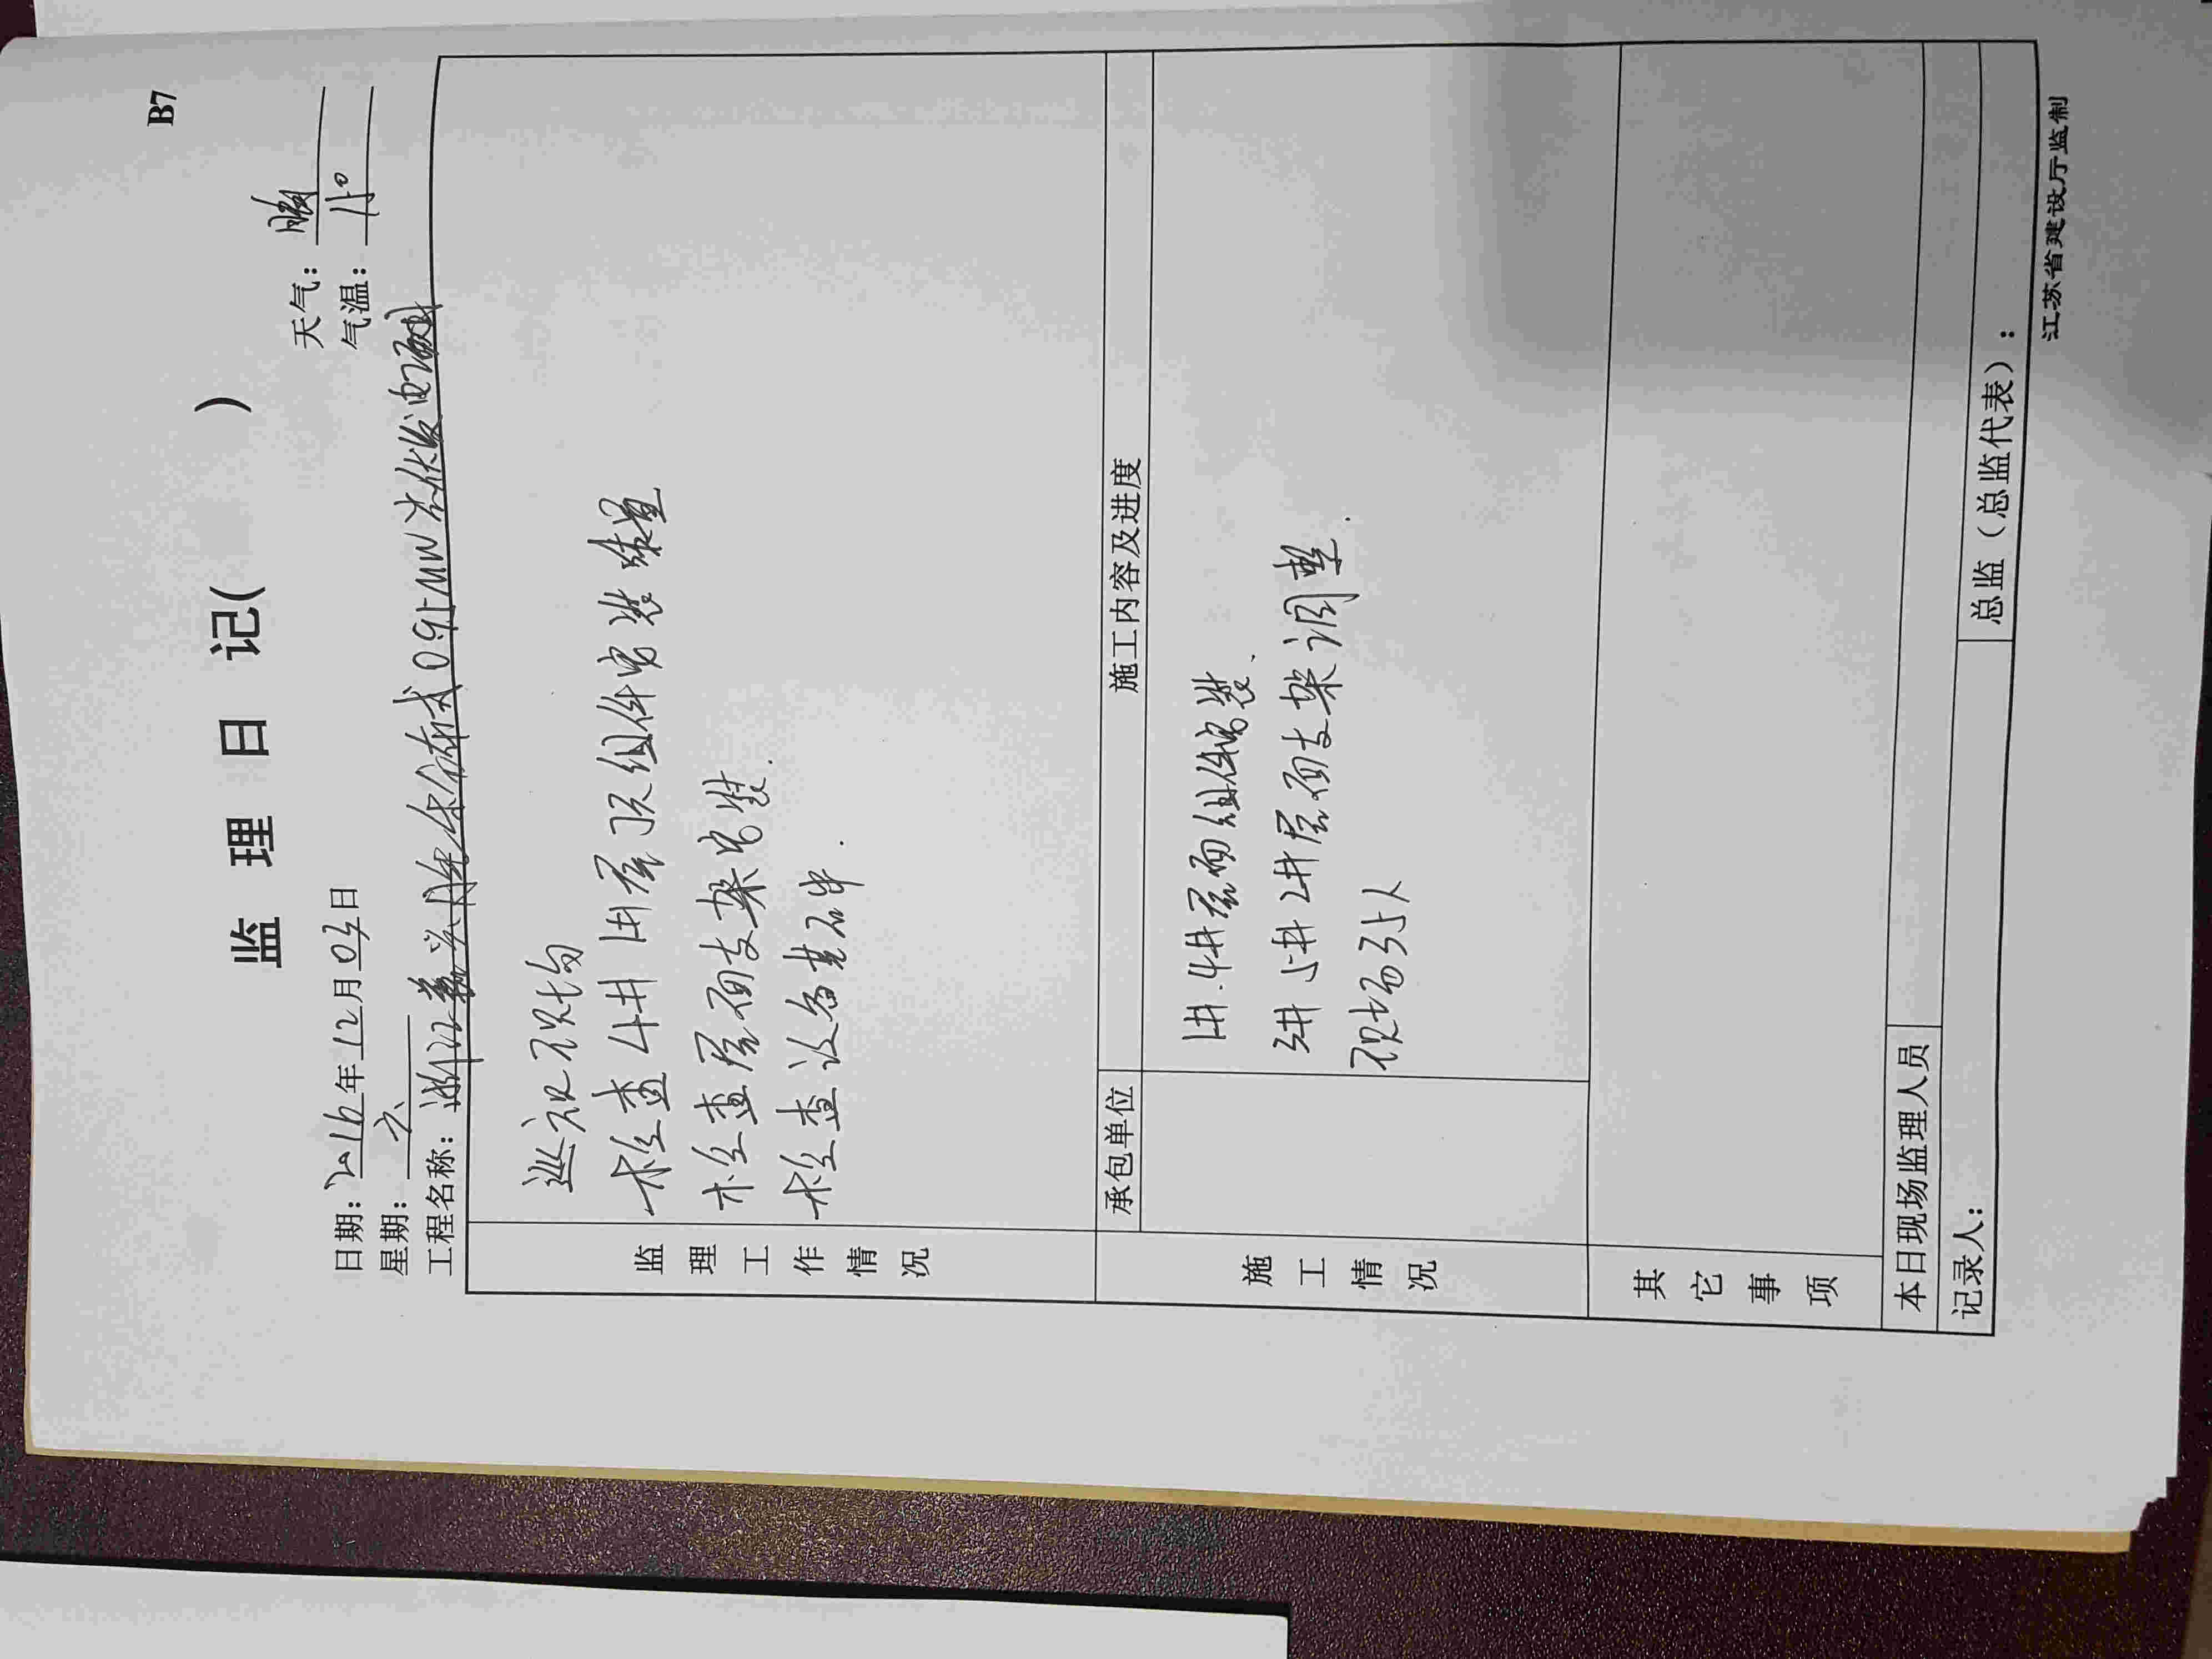 B7
监 理 日 记( )
日期：2016年12月03日
天气：晴
星期：六
气温：15°
工程名称：浙江 分布式0.95MW光伏发电项目
监理工作情况
巡视现场
检查4# 1#屋顶组件安装质量
检查屋面支架安装.
检查设备基础.
施工情况
承包单位
施工内容及进度
1#.4#屋面组件安装、
3# 5# 2#屋面支架调整.
现场35人
其它事项
本日现场监理人员
记录人：
总监（总监代表）：
江苏省建设厅监制